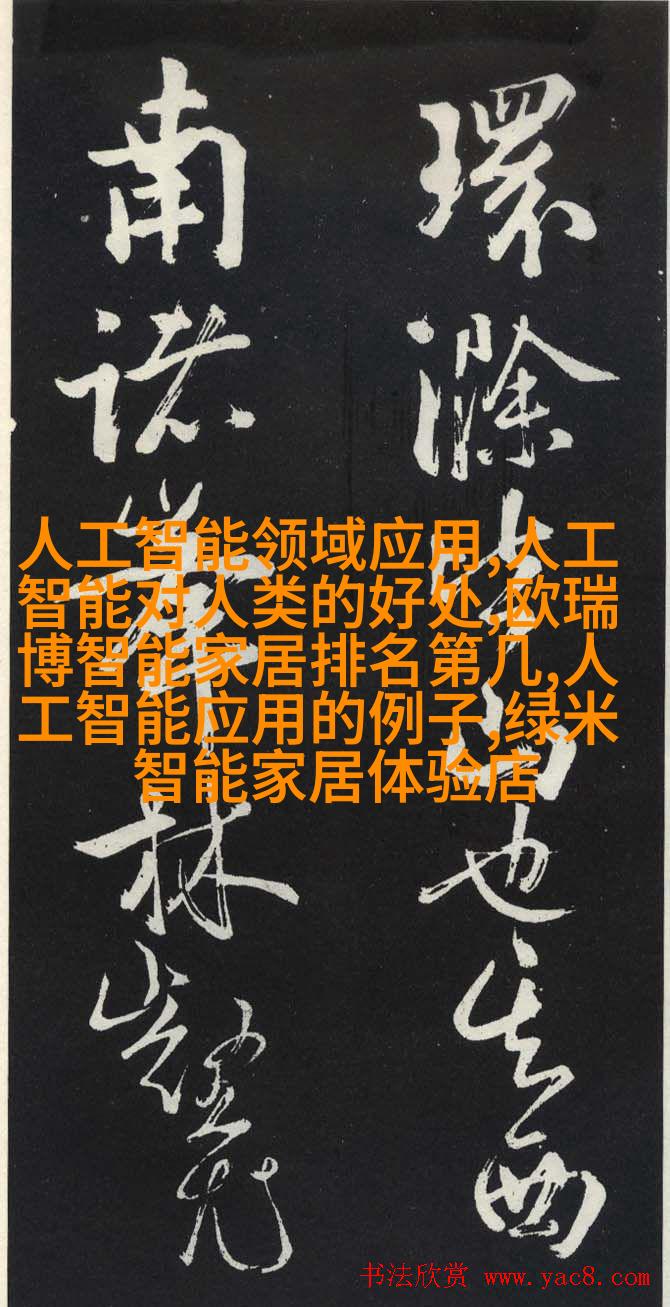 環滁皆山也其西
南諸峯林壑尤
人工智能领域应用,人工
智能对人类的好处,欧瑞
博智能家居排名第几,人
工智能应用的例子,绿米
智能家居体验店
书法欣赏 www.yac8.com